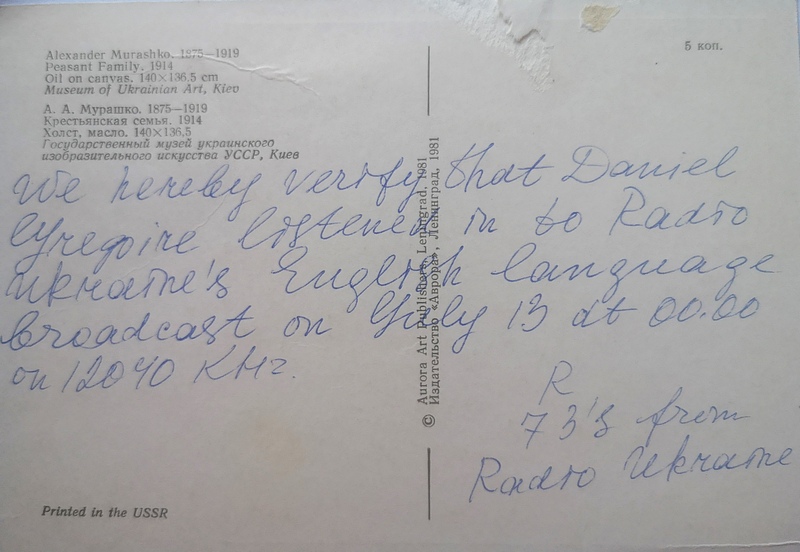 Alexander Murashko. 1875—1919
Peasant Family. 1914
Oil on canvas. 140×136,5 cm
Museum of Ukrainian Art, Kiev
А. А. Мурашко. 1875—1919
Крестьянская семья. 1914
Холст, масло. 140×136,5
Государственный музей украинского
изобразительного искусства УССР, Киев
5 коп.
We hereby verify that Daniel
Gregoire listened in to Radio
Ukraine's English language
broadcast on July 13 at 00.00
on 12040 KHz.
R
73's from
Radio Ukraine
© Aurora Art Publishers, Leningrad, 1981
Издательство «Аврора», Ленинград, 1981
Printed in the USSR